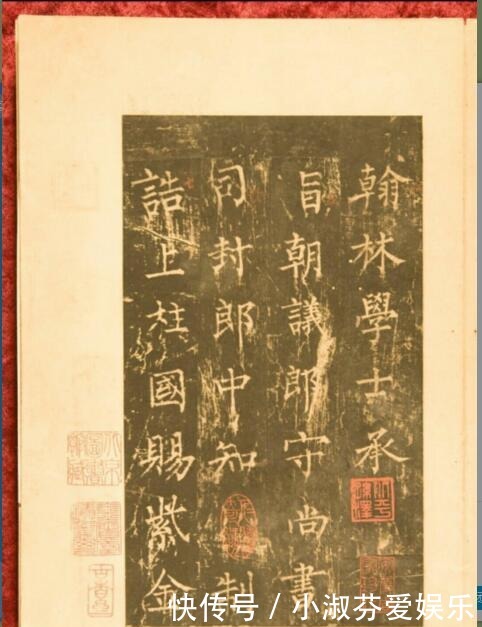 翰林學士承
旨朝議郎守尚書
司封郎中知制
誥上柱國賜紫金
快传号/小淑芬爱娱乐